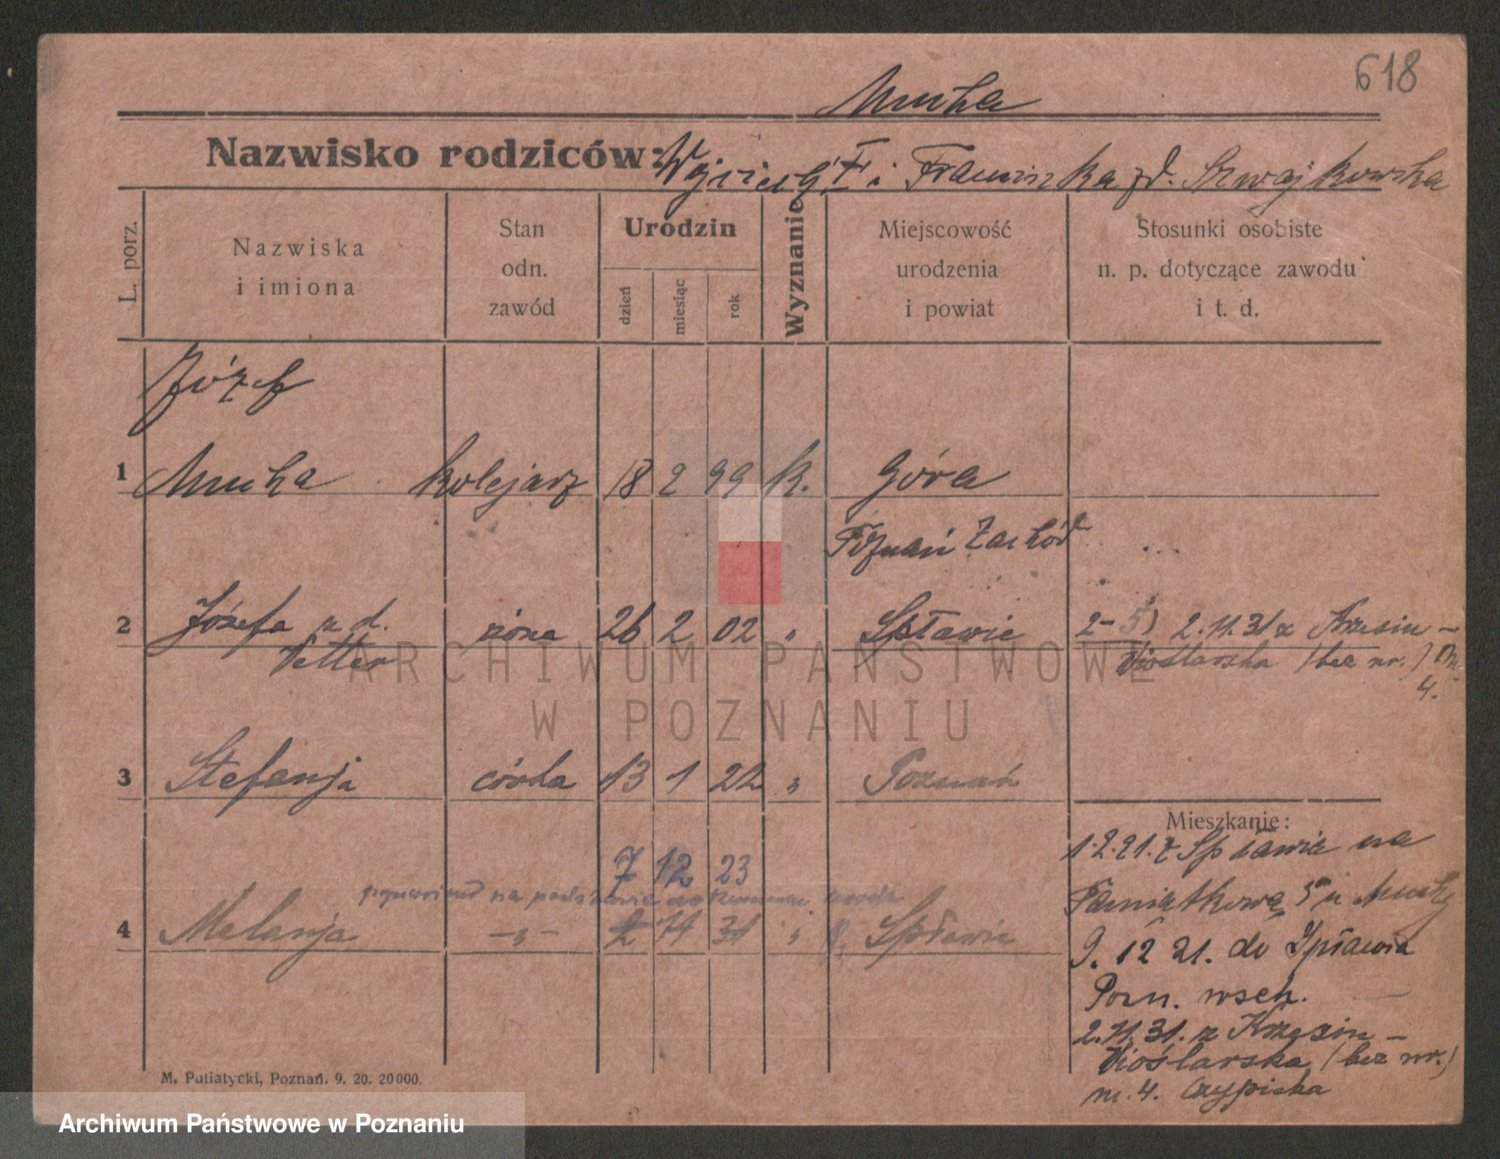 618
Mucha
Nazwisko rodziców: Wojciech i Franciszka zd. Szwajkowska
L. porz.
Nazwiska
i imiona
Stan
odn.
zawód
Urodzin
dzień
miesiąc
rok
Wyznanie
Miejscowość
urodzenia
i powiat
Stosunki osobiste
n. p. dotyczące zawodu
i t. d.
Józef
1 Mucha kolejarz 18 2 99 k. Góra
Poznań Zachód
2 Józefa z d. żona 26 2 02 " Spławie 2-5) 2.11.31 z Krzesin -
Vetter Wioślarska (bez nr.) m.
4.
3 Stefanja córka 13 1 22 " Poznań
Mieszkanie:
1.2.21. z Spławie na
7 12 23
na podstawie
Pamiątkową 5 u Muchy
4 Melanja -"- 2 11 31 " Spławie
9. 12 21. do Spławia
Pozn. wsch.
2.11.31. z Krzesin -
Wioślarska (bez nr.)
m. 4. Czypicka
M. Putiatycki, Poznań. 9. 20. 20000.
ARCHIWUM PAŃSTWOWE
W POZNANIU
Archiwum Państwowe w Poznaniu